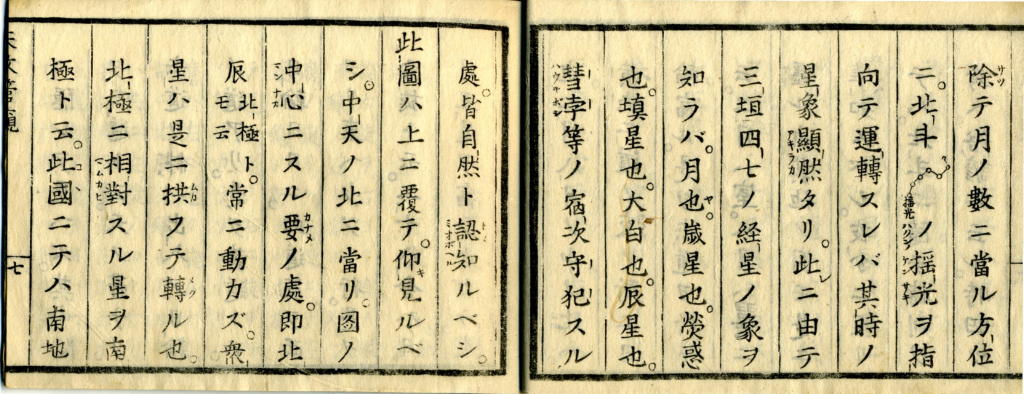 除テ月ノ數ニ當ル方位
ニ。北斗ノ揺光ヲ指
向テ運轉スレバ其時ノ
星象顯然タリ。此ニ由テ
三垣四七ノ経星ノ象ヲ
知ラバ。月也。歳星也。熒惑
也。塡星也。大白也。辰星也。
彗孛等ノ宿次守犯スル
處。皆自然ト認知ルベシ。
此圖ハ上ニ覆テ。仰見ルベ
シ。中天ノ北ニ當リ。圏ノ
中心ニスル要ノ處。即北
辰北極トモ云。常ニ動カズ。衆
星ハ是ニ拱フテ轉ル也。
北極ニ相對スル星ヲ南
極ト云。此國ニテハ南地
七